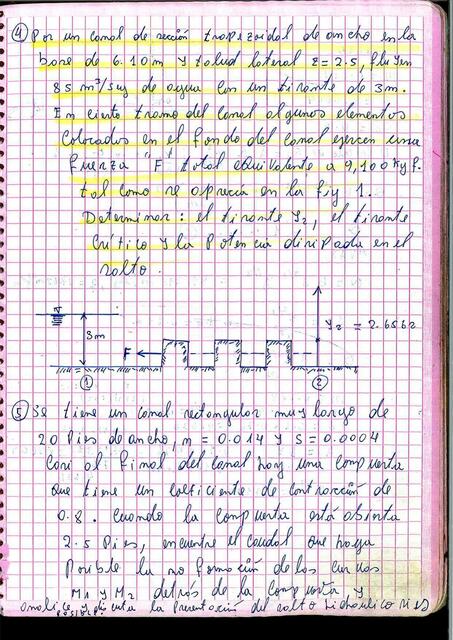 ④ Por un canal de sección trapezoidal de ancho en la
base de 6.10 m y talud lateral z = 2.5, fluyen
85 m³/seg de agua con un tirante de 3m.
En cierto tramo del canal algunos elementos
colocados en el fondo del canal ejercen una
fuerza "F" total equivalente a 9,100 Kg f.
tal como se aprecia en la fig 1.
Determinar: el tirante Y2, el tirante
crítico y la Potencia disipada en el
salto.
3m
F
Y2 = 2.6562
①
②
⑤ Se tiene un canal rectangular muy largo de
20 Pies de ancho, n = 0.014 y S = 0.0004
Casi al final del canal hay una compuerta
que tiene un coeficiente de contracción de
0.8. Cuando la compuerta está abierta
2.5 Pies, encuentre el caudal que haga
Posible la no formación de las curvas
M1 y M2 detrás de la compuerta y
analice y discuta la presentación del salto hidráulico